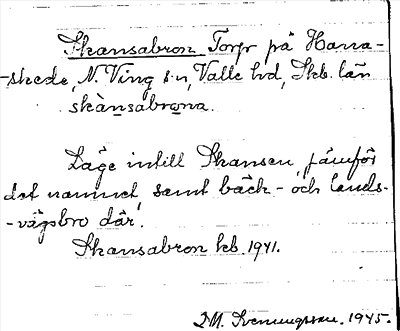 Skansabron Torp på Harra-
-skede, N. Ving s:n, Valle hd, Skb. län
skànsabrona.
Läge intill Skansen, jämför
det namnet, samt bäck- och lands-
-vägsbro där.
Skansabron kb. 1941.
M. Svenungsson. 1945.